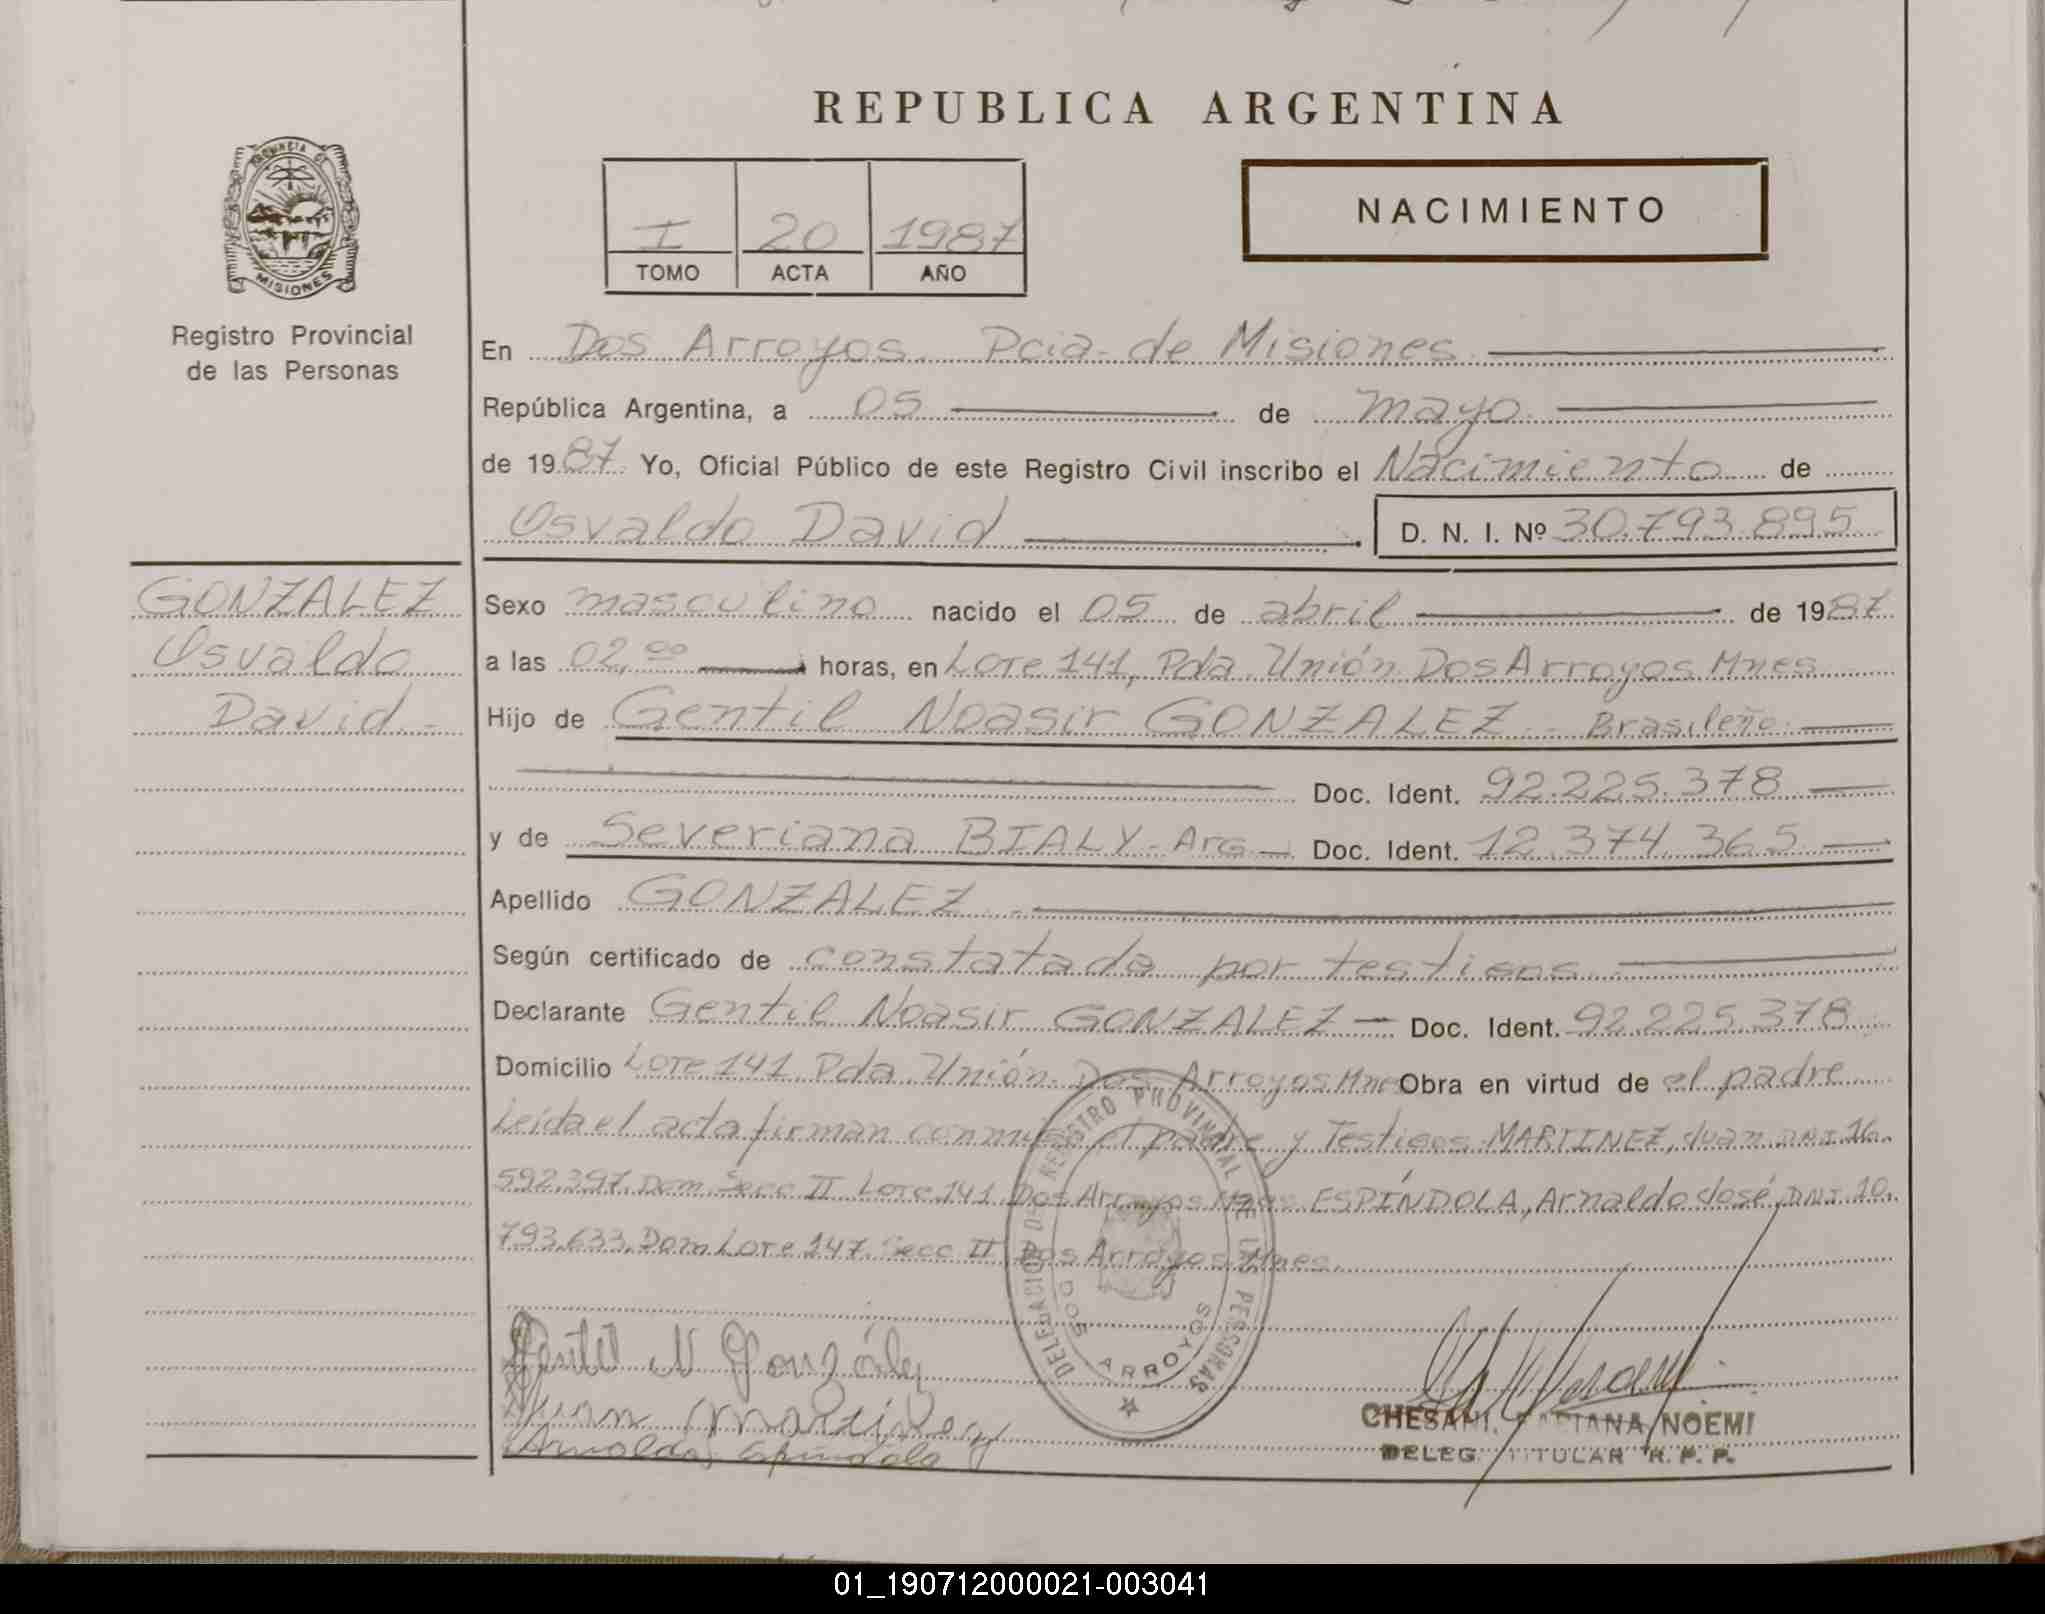 REPUBLICA ARGENTINA
PROVINCIA DE
MISIONES
Registro Provincial
de las Personas
I 20 1987
TOMO ACTA AÑO
NACIMIENTO
En Dos Arroyos Pcia- de Misiones
República Argentina, a 05 de mayo
de 1987 Yo, Oficial Público de este Registro Civil inscribo el Nacimiento de
Osvaldo David D. N. I. Nº 30.793.895
GONZALEZ
Osvaldo
David.-
Sexo masculino nacido el 05 de abril de 1987
a las 02,00 horas, en Lote 141, Pda. Unión Dos Arroyos Mnes
Hijo de Gentil Noasir GONZALEZ.- Brasileño.
Doc. Ident. 92.225.378
y de Severiana BIALY- Arg- Doc. Ident. 12.374.365
Apellido GONZALEZ.
Según certificado de constatada por testigos.
Declarante Gentil Noasir GONZALEZ- Doc. Ident. 92.225.378
Domicilio Lote 141 Pda. Unión. Dos Arroyos Mnes Obra en virtud de el padre
Leída el acta firman conmigo el padre y Testigos MARTINEZ, Juan DNI 16.
592.397. Dom. Secc II Lote 141 Dos Arroyos Mnes. ESPÍNDOLA, Arnaldo José, DNI 10.
793.633. Dom Lote 147. Secc II Dos Arroyos Mnes.
DELEGACION DE REGISTRO PROVINCIAL DE LAS PERSONAS
DOS ARROYOS
Gentil N González
Juan Martinez
Arnoldo Espindola
CHESANI, FABIANA NOEMI
DELEG. TITULAR R. P. P.
01_190712000021-003041